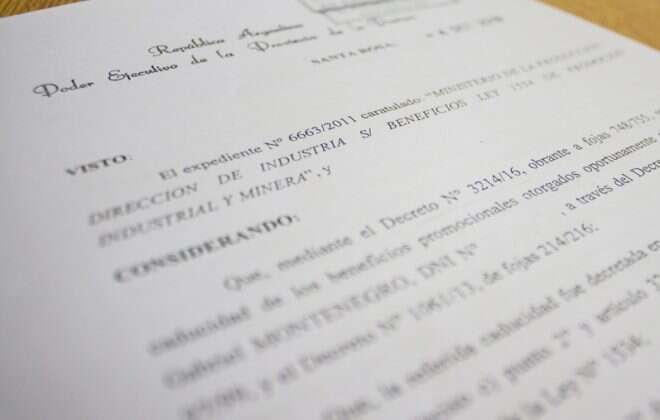 República Argentina
Poder Ejecutivo de la Provincia de La Pampa
SANTA ROSA,
VISTO:
El expediente Nº 6663/2011 caratulado: "MINISTERIO DE LA PRODUCCION
DIRECCION DE INDUSTRIA S/ BENEFICIOS LEY 1534 DE PROMOCION
INDUSTRIAL Y MINERA", y
CONSIDERANDO:
Que, mediante el Decreto Nº 3214/16, obrante a fojas 748/755,
caducidad de los beneficios promocionales otorgados oportunamente
Gabriel MONTENEGRO, DNI Nº , a través del Decre
y el Decreto Nº 1061/13, de fojas 214/216;
Que, la referida caducidad fue decretada en
punto 2° y artículo 32
la Ley Nº 1534;